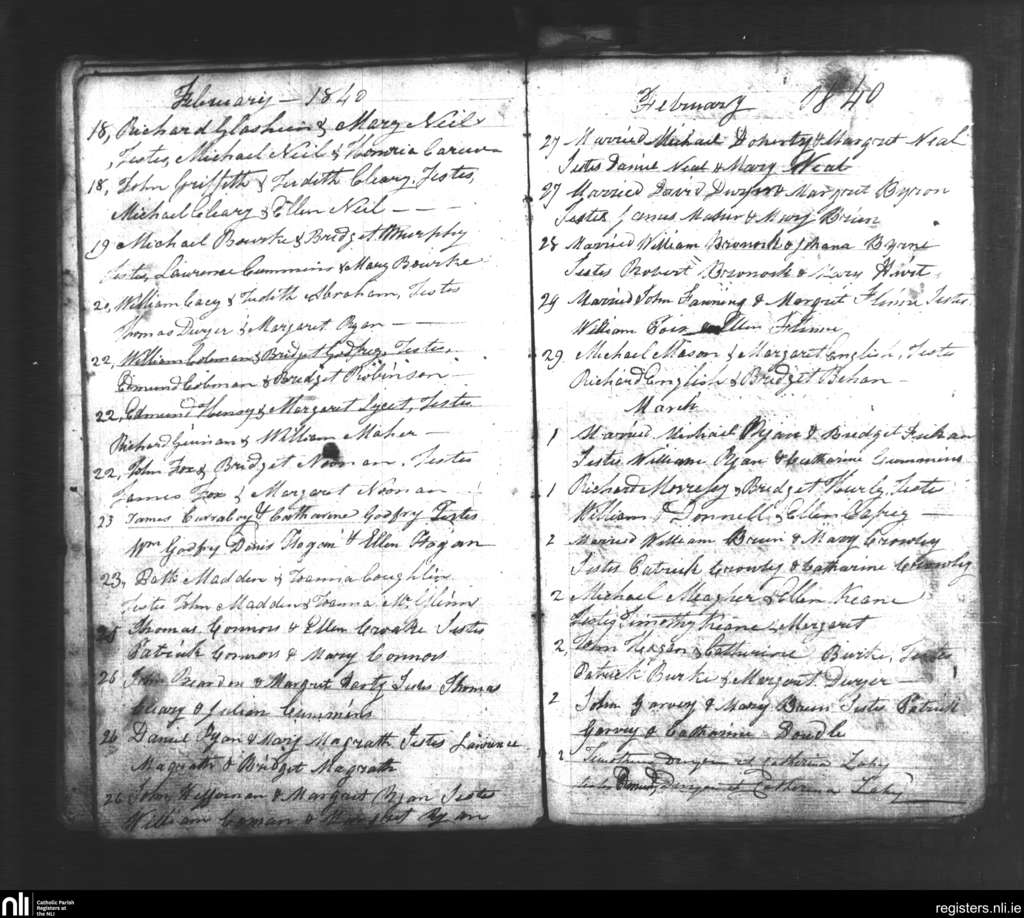 February - 1840
18, Richard Glasheen & Mary Neil
Testes, Michael Neil & Honria
18, John Griffith & Judith Cleary, Testes,
Michael Cleary & Ellen Neil - - -
19 Michael Bourke & Bridget Murphy
Testes, Lawrence Cummins & Mary Bourke
20, William Cacy & Judith Abraham, Testes
Thomas Dwyer & Margaret Ryan - -
22, William Colman & Bridget Godfrey, Testes,
Edmund Colman & Bridget Robinson -
22, Edmund Henry & Margaret Testes
Richard & William Maher -
22, John Fox & Bridget Noonan, Testes
James Fox & Margaret Noonan
23 James Curraboy & Catharine Godfry Testes
Wm Godfry Denis Hogan & Ellen Hogan
23, Patk Madden & Joanna Coughlin
Testes John Madden & Joanna McGlinn
25 Thomas Connors & Ellen Croake Testes
Patrick Connors & Mary Connors
26 John Reardon & Margret Testes Thomas
Cleary & Julian Cummins
26 Daniel Ryan & Mary Magrath Testes Lawrence
Magrath & Bridget Magrath
26 John Heffernan & Margret Ryan Testes
William & Margret Ryan
February 1840
27 Married Michael Doherty & Margret Neal
Testes Daniel Neal & Mary Neal
27 Married David Margret Byron
Testes James Mahur & Mary Brien
28 Married William Bronock & Johana Byrne
Testes Robert Bronock & Mary
29 Married John Fanning & Margret Testes
William Ellen
29. Michael Mason & Margaret English, Testes
Richard English & Bridget Behan -
March
1 Married Michael Ryan & Bridget
Testes William Ryan & Catharine Cummins
1 Richard Morressy & Bridget Hurly, Testes
William O Donnell & Ellen -
2 Married William Bruin & Mary Crowley
Testes Patrick Crowley & Catharine Crowly
2 Michael Meagher & Ellen Keane
Testes Timothy Keane Margaret
2, John & Catherine Burke, Testes
Patrick Burke & Margaret Dwyer -
2 John Garvey & Mary Bruin Testes Patrick
Garvey & Catharine Doudle
2 et Catherina Lahy
testes et Catherina Lahy
nli
Catholic Parish
Registers at
the NLI
registers.nli.ie